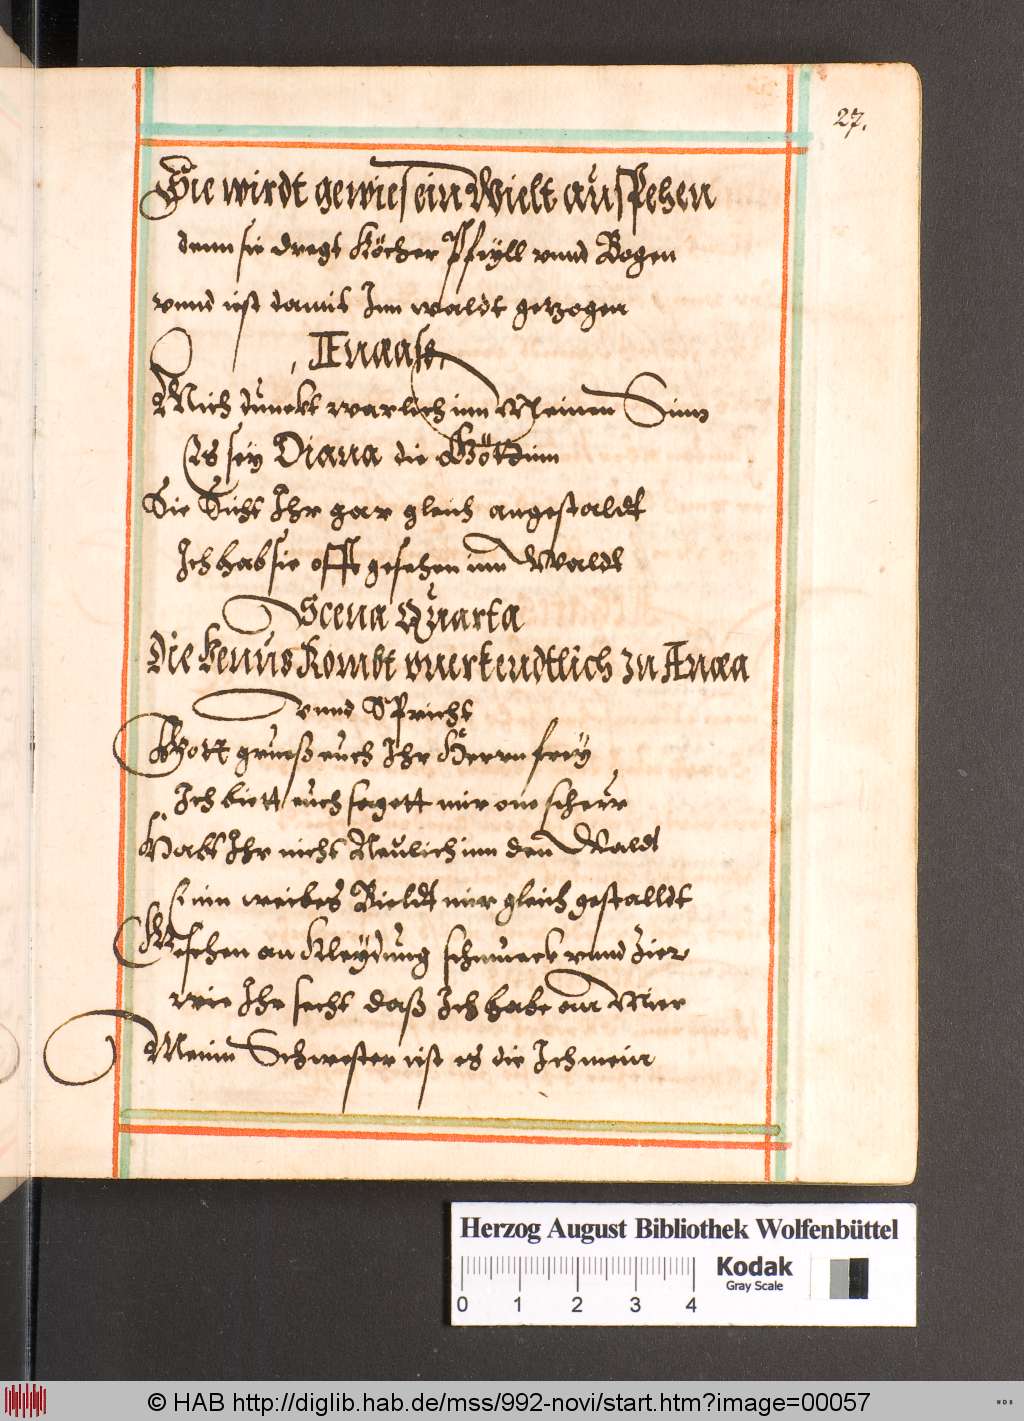 27.
Sie wirdt gewies ein Wielt ausspehen
denn sie dregt Köcher Pfeyll vnnd Bogen
vnnd iist damit Inn waldt gezogen
Ænaase
Mich dunckt warlich inn Meinen Sinn
Es sey Diana die Göttinn
Sie Siht Ihr gar gleich angestaldt
Ich hab sie offt gesehen inn Waldt
Scena Quarta
Die Venus Kombt vnerkendtlich zu Ænæa
vnnd Spricht
Gott grueß euch Ihr Herrn frey
Ich biett euch sagett mir one scheuw
Habt Ihr nicht Neulich inn den Waldt
einn weibes Bieldt mir gleich gestalldt
Gesehen an Kleydung schmuck vnnd Zier
wie Ihr secht daß Ich habe an Mier
Meinn Schwester iist es die Ich mein
Herzog August Bibliothek Wolfenbüttel
0 1 2 3 4
Kodak
Gray Scale
© HAB http://diglib.hab.de/mss/992-novi/start.htm?image=00057